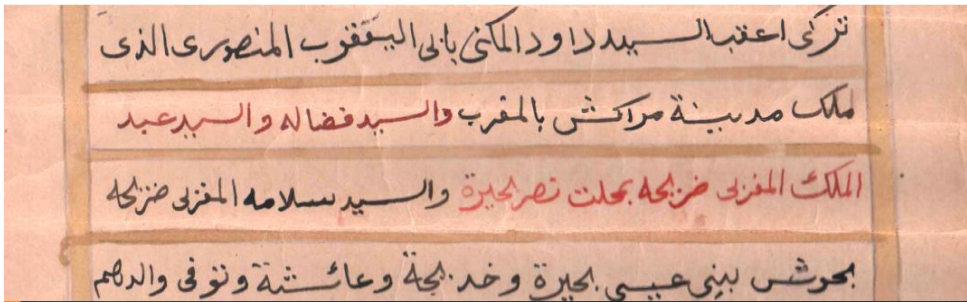 تركى اعقب السيد داود المكنى بابى اليعقوب المنصورى الذى
ملك مدينة مراكش بالمغرب والسيد فضاله والسيد عبد
الملك المغربى ضريحه بمحلت نصر بحيرة والسيد سلامه المغربى ضريحه
بحوش بينى عيسى بحيرة وخديجة وعائشة وتوفى والدهم